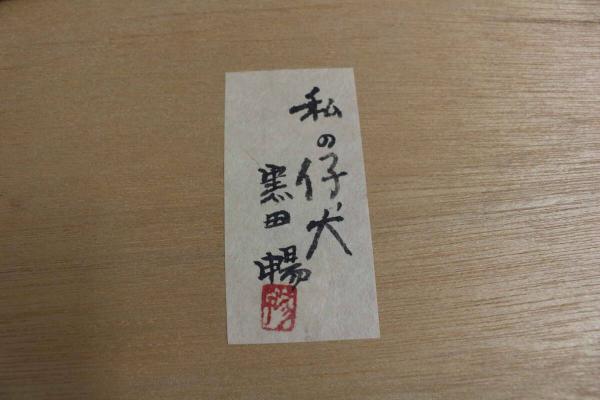 私の仔犬
黒田暢